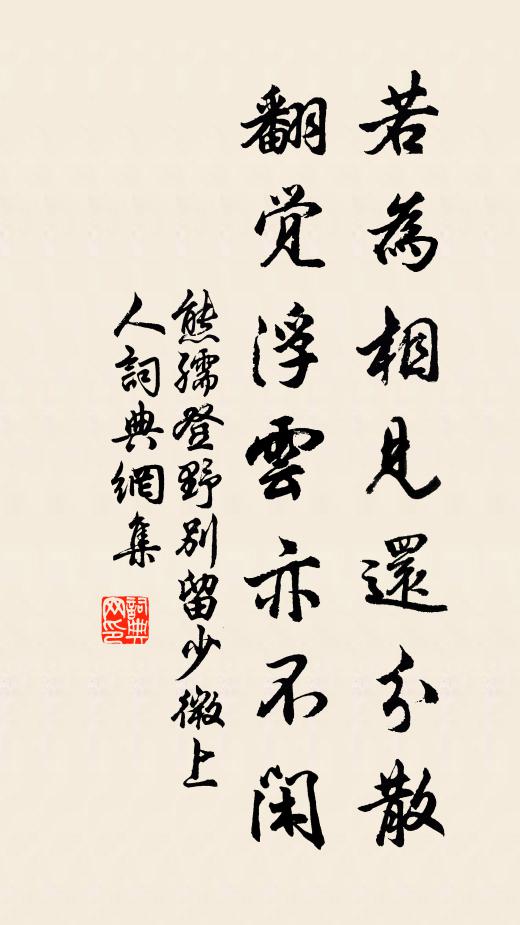 若為相見還分散
翻覚浮雲亦不閑
熊孺登野別留少微上
人詞典網集
詞典
网印